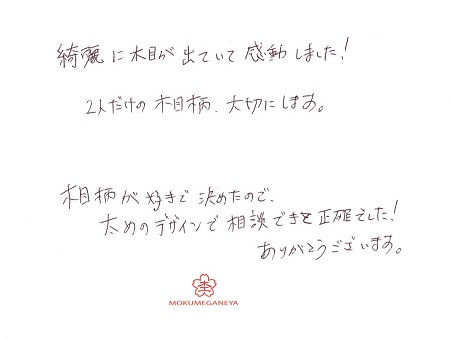 綺麗に木目が出ていて感動しました!
2人だけの木目柄、大切にします。
木目柄が好きで決めたので、
太めのデザインで相談できて正確でした!
ありがとうございます。
MOKUMEGANEYA